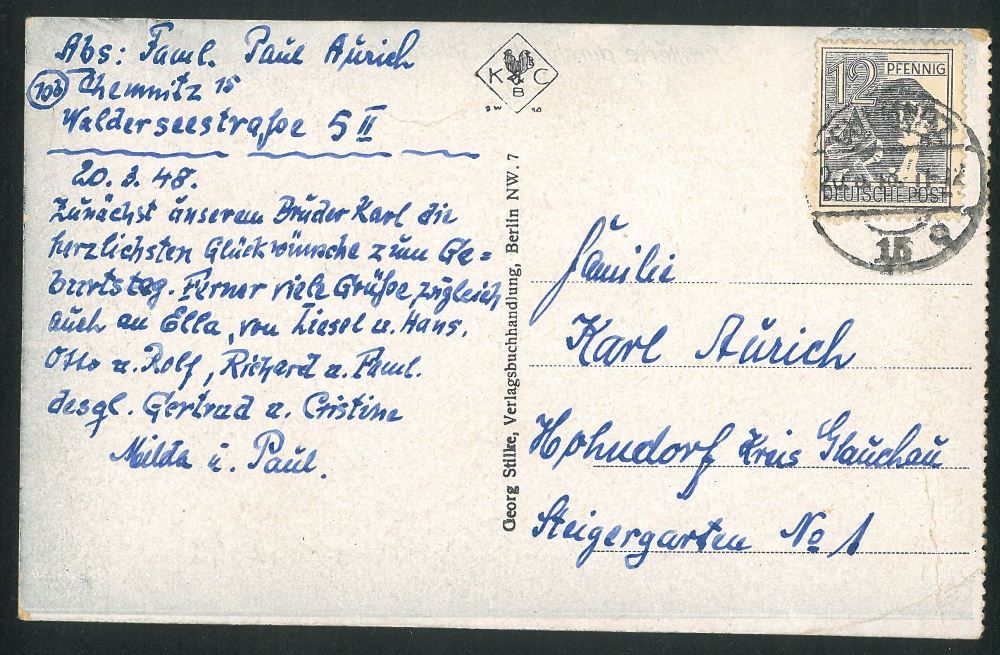 Abs: Faml. Paul Aurich
(10b) Chemnitz 15
Walderseestraße 5 II
20. 3. 48.
Zunächst unserem Bruder Karl die
herzlichsten Glückwünsche zum Ge=
burtstag. Ferner viele Grüße zugleich
auch an Ella, von Liesel u. Hans.
Otto u. Rolf, Richard u. Faml.
desgl. Gertrud u. Cristine
Milda u. Paul.
K & C
B
Georg Stilke, Verlagsbuchhandlung, Berlin NW. 7
12 PFENNIG
DEUTSCHE POST
15 g
Familie
Karl Aurich
Hohndorf Kreis Glauchau
Steigergarten No 1